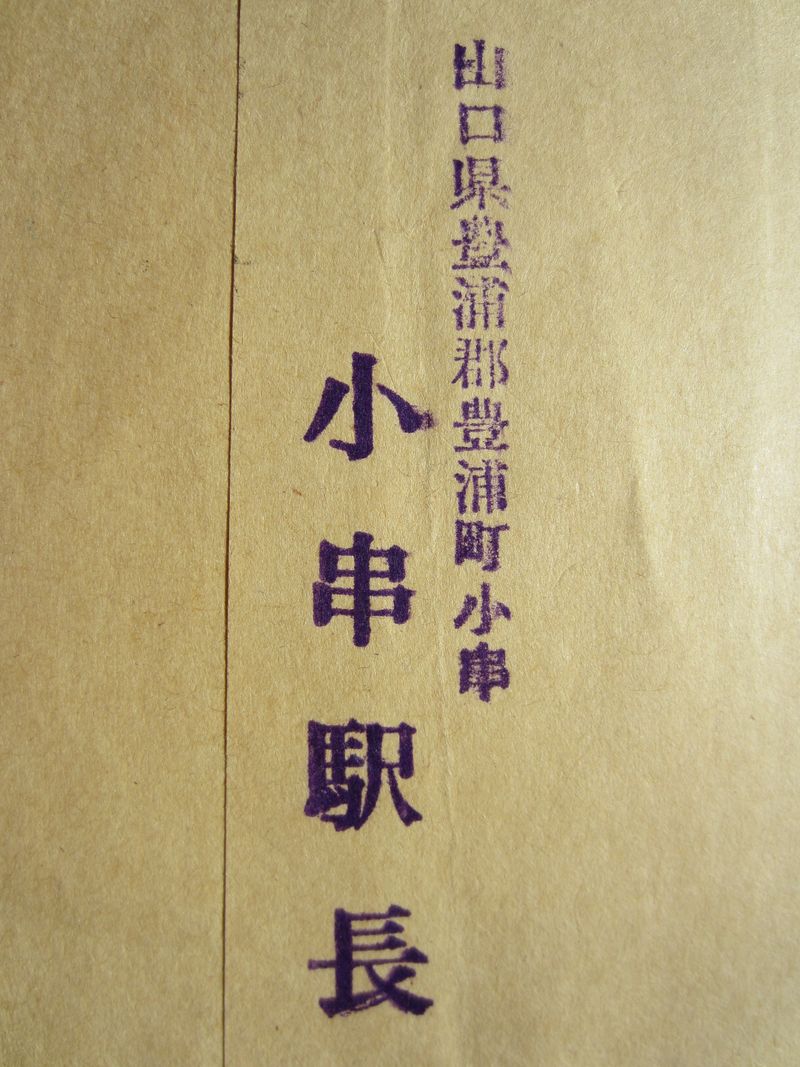 山口県豊浦郡豊浦町小串
小串駅長